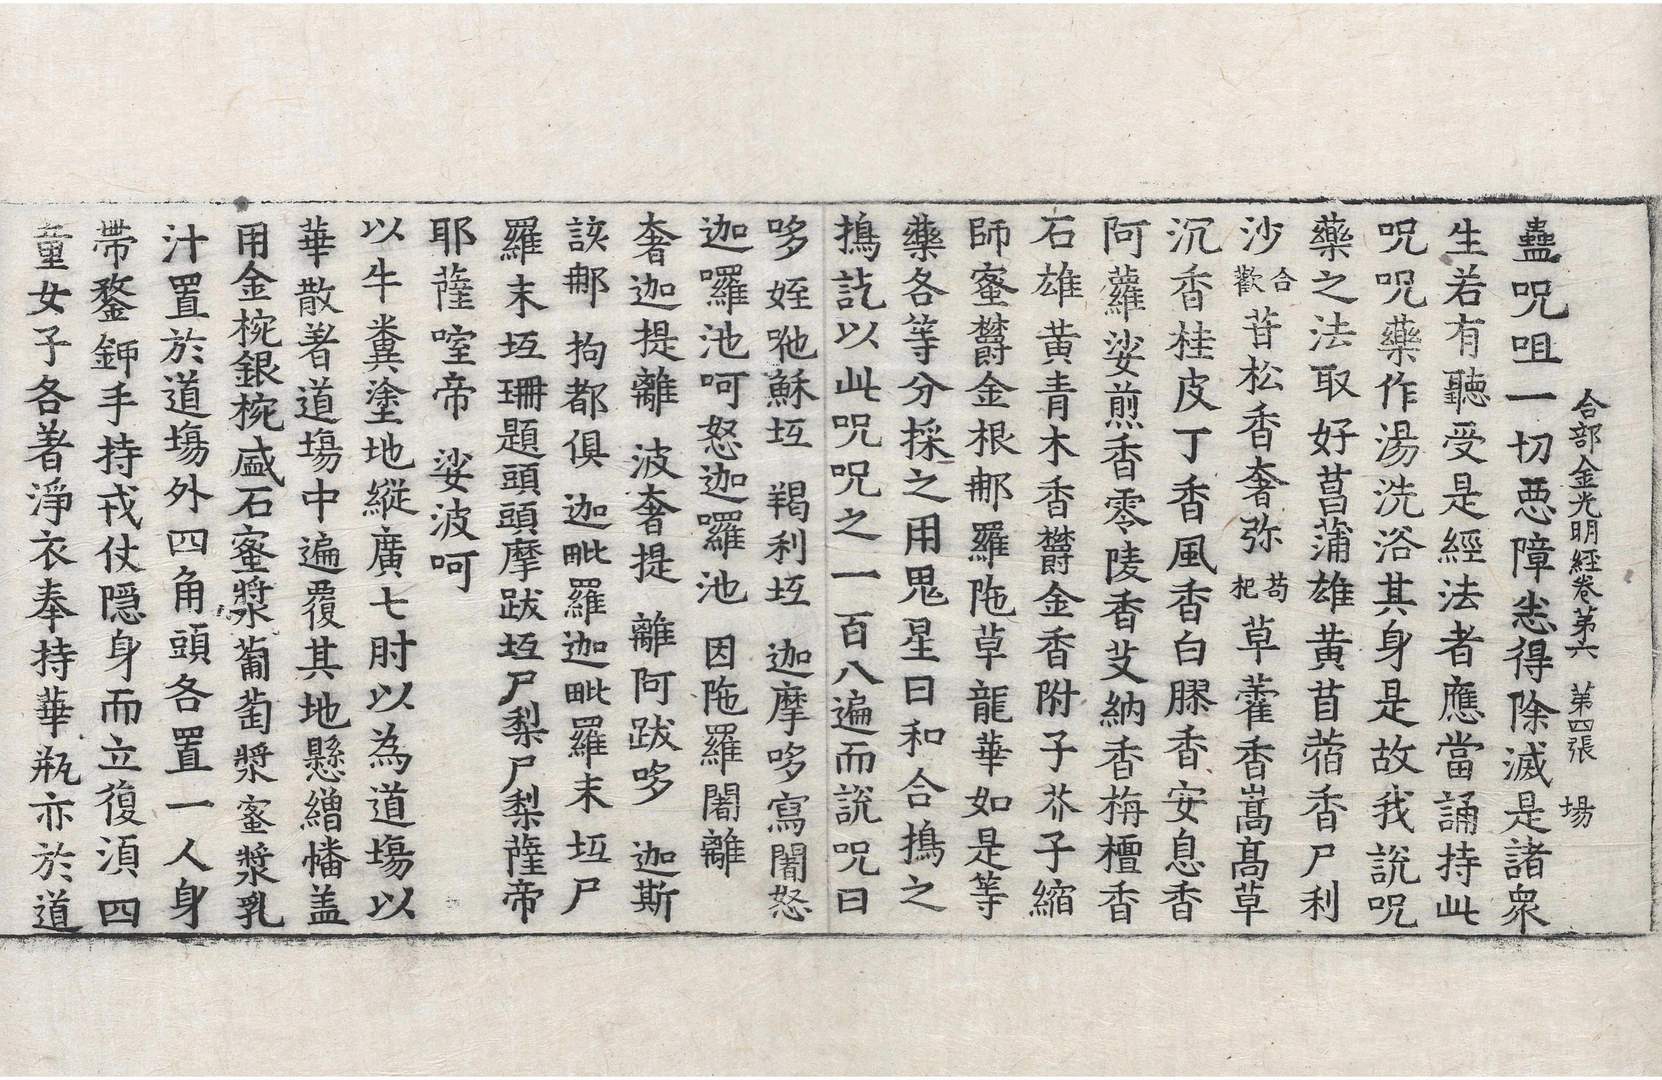 合部金光明經卷第六 第四張 場
蠱呪咀一切惡障悉得除滅是諸衆
生若有聽受是經法者應當誦持此
呪呪藥作湯洗浴其身是故我說呪
藥之法取好菖蒲雄黃苜蓿香尸利
沙合歡苷松香奢弥苟杞草藿香嵩高草
沉香桂皮丁香風香白膠香安息香
阿蘿娑煎香零陵香艾納香栴檀香
石雄黃青木香欝金香附子芥子縮
師蜜欝金根那羅陁草龍華如是等
藥各等分採之用鬼星日和合搗之
搗訖以此呪呪之一百八遍而說呪曰
哆姪他蘇坘 羯利坘 迦摩哆寫闍怒
迦囉池呵怒迦囉池 因陁羅闍離
奢迦提離 波奢提 離阿跋哆 迦斯
該那 拘都俱 迦毗羅迦毗羅末坘尸
羅末坘珊題頭頭摩跋坘尸梨尸梨薩帝
耶薩㗌帝 娑波呵
以牛糞塗地縱廣七肘以為道場以
華散著道場中遍覆其地懸繒幡盖
用金椀銀椀盛石蜜漿蒲萄漿蜜漿乳
汁置於道場外四角頭各置一人身
帶鍪鉀手持戎仗隱身而立復須四
童女子各著淨衣奉持華瓶亦於道